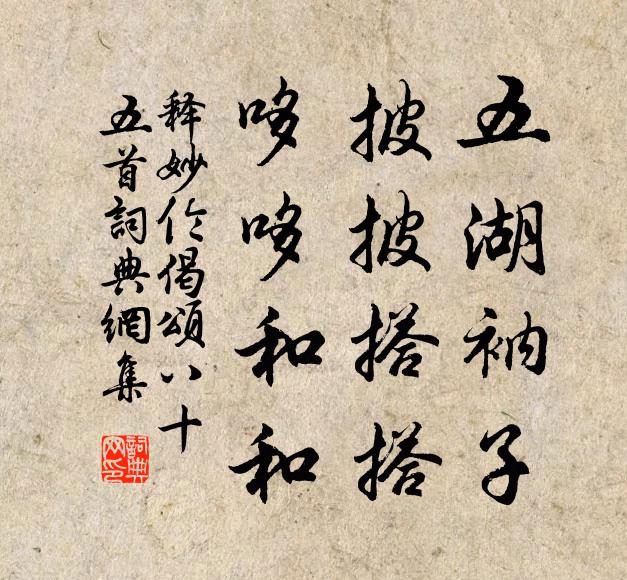 五湖衲子
披披搭搭
哆哆和和
释妙伦偈頌八十
五首詞典網集
詞典網印